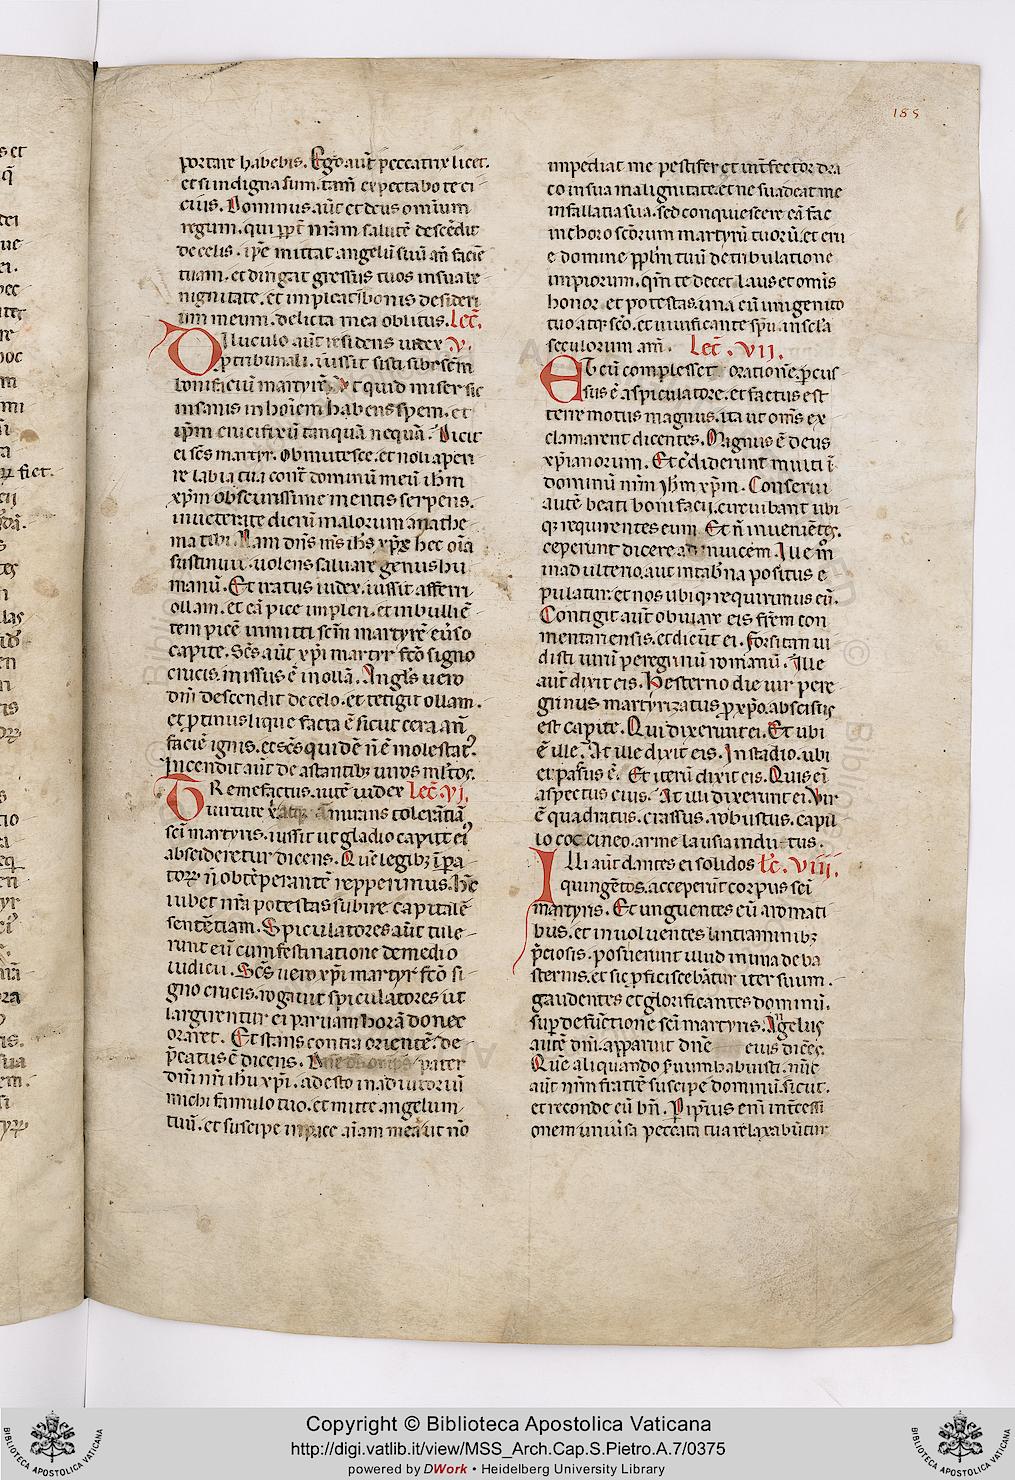 185
portare habebis. Ego aut̄ peccatrix licet.
et si indigna sum. tam̄ expectabo te ci
cius. Dominus aut̄ et deus omnium
regum. qui ꝓpt̄ nr̄am salutē descēdit
de celis. ip̄e mittat angelū suū an̄ faciē
tuam. et dirigat gressus tuos in sua be
nignitate. et impleat bonis desideri
um meum. delicta mea oblitus. Lec̄.
Diluculo aut̄ residens iudex V.
ꝓ tribunali. iussit sisti sibi scm̄
bonifaciū martyrē. Et quid miser sic
insanis in hoīem habens spem. et
ip̄m crucifixū tanquā nequā. Dicit
ei sc̄s martyr. Obmutesce. et noli aperi
re labia tua cont̄ dominū meū ihm̄
xp̄m obscurissime mentis serpens.
inueterate dierū malorum anathe
ma tibi. Nam dn̄s ms̄ ihs̄ xp̄s hec oīa
sustinuit. uolens saluare genus hu
manū. Et iratus iudex. iussit afferri
ollam. et eā pice impleri. et in bulliē
tem picē immitti scm̄ martyrē euerso
capite. Sc̄s aut̄ xp̄i martyr fc̄o signo
crucis. missus ē in ollā. Angl̄s uero
dn̄i descendit de celo. et tetigit ollam.
et ꝓtinus lique facta ē sicut cera an̄
faciē ignis. et sc̄s quidē n̄ ē molestat᷒.
Incendit aut̄ de astantibꝫ uiros ml̄tos.
Tremefactus. autē iudex Lec̄. VI.
uirtute x̄ atqꝫ ammirans tolerātiā
sc̄i martyris. iussit ut gladio caput ei᷒
abscideretur dicens. Quē legibꝫ īpa
toꝝ n̄ obtēperantē repperimus. hūc
iubet nr̄a potestas subire capitalē
sentētiam. Spiculatores aut̄ tule
runt eū cum festinatione de medio
iudicii. Sc̄s uero xp̄i martyr fc̄o si
gno crucis. rogauit spiculatores ut
largirentur ei paruam horā donec
oraret. Et stans contra orientē. de
p̄catus ē dicens. Dn̄e ds̄ omp̄s pater
dn̄i nr̄i ihū xp̄i. adesto in adiutoriū
michi famulo tuo. et mitte angelum
tuū. et suscipe in pace aīam meā. ut nō
impediat me pestifer et int̄fector dra
co in sua malignitate. et ne suadeat me
in fallatia sua. sed conquiescere eā fac
in choro sc̄orum martyrū tuorū. et eru
e domine ppl̄m tuū de tribulatione
impiorum. qm̄ te decet laus et om̄is
honor et potestas. una cū unigenito
tuo atqꝫ sc̄o. et uiuificante sp̄u. in sc̄la
seculorum am̄. Lec̄. VII.
Et cū complesset orationē. ꝑcus
sus ē a spiculatore. et factus est
terre motus magnus. ita ut om̄s ex
clamarent dicentes. Magnus ē deus
xp̄ianorum. Et c̄diderunt multi ī
dominū nr̄m ihm̄ xp̄m. Conserui
autē beati bonifacii. circuibant ubi
qꝫ requirentes eum. Et n̄ inueniētes.
ceperunt dicere ad inuicem. Ille m̄
in adulterio. aut in tab̄na positus e
pulatur. et nos ubiqꝫ requirimus eū.
Contigit aut̄ obuiare eis fr̄em con
mentariensis. et dicūt ei. Forsitan ui
disti unū peregrinū romanū. Ille
aut̄ dixit eis. Hesterno die uir pere
grinus martyrizatus ꝓ xp̄o. abscisus
est capite. Qui dixerunt ei. Et ubi
ē ille. At ille dixit eis. In stadio. ubi
et passus ē. Et iterū dixit eis. Quis ei᷒
aspectus eius. At illi dixerunt ei. Vir
ē quadratus. crassus. robustus. capil
lo coccineo. armelausia indutus.
Illi aut̄ dantes ei solidos Lc̄. VIII.
quingētos. acceperūt corpus sc̄i
martyris. Et unguentes eū aromati
bus. et inuoluentes lintiaminibꝫ
p̄ciosis. posuerunt illud in una de ba
sternis. et sic ꝓficiscebātur iter suum.
gaudentes et glorificantes dominū.
suꝑ defūctione sc̄i martyris. Angelus
autē dn̄i. apparuit dn̄e eius dicēs.
Quē aliquando seruum habuisti. nūc
aut̄ nr̄m fratrē suscipe dominū. sicut.
et reconde eū bn̄. Ip̄ius enī int̄cessi
onem uniūsa peccata tua relaxabūtur
Copyright © Biblioteca Apostolica Vaticana
http://digi.vatlib.it/view/MSS_Arch.Cap.S.Pietro.A.7/0375
powered by DWork • Heidelberg University Library